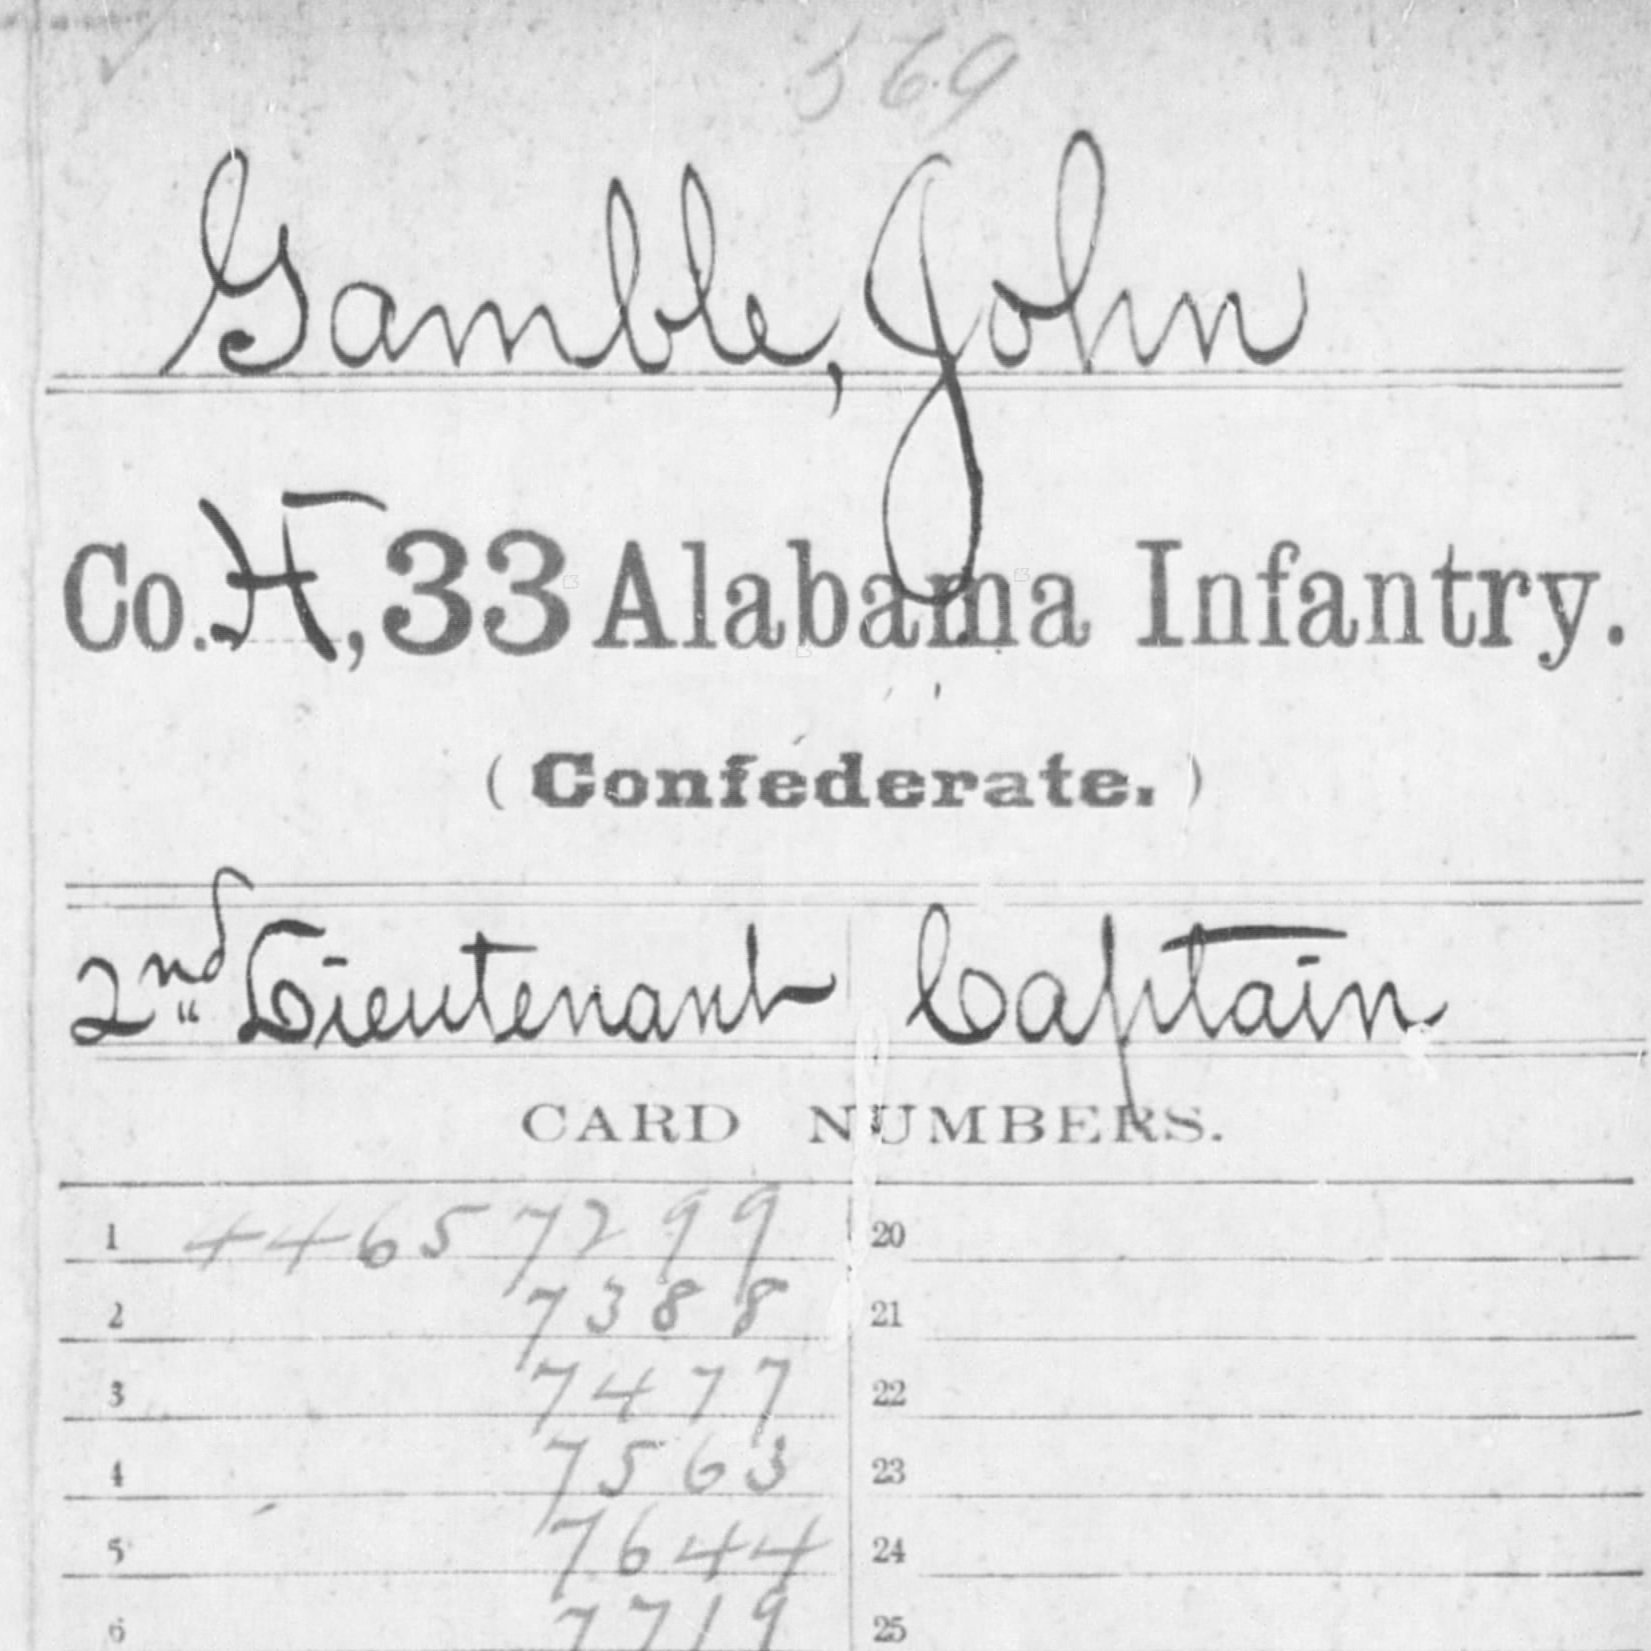 569
Gamble, John
Co. H, 33 Alabama Infantry.
(Confederate.)
2nd Lieutenant Captain
CARD NUMBERS.
1 44657299 20
2 7388 21
3 7477 22
4 7563 23
5 7644 24
6 7719 25